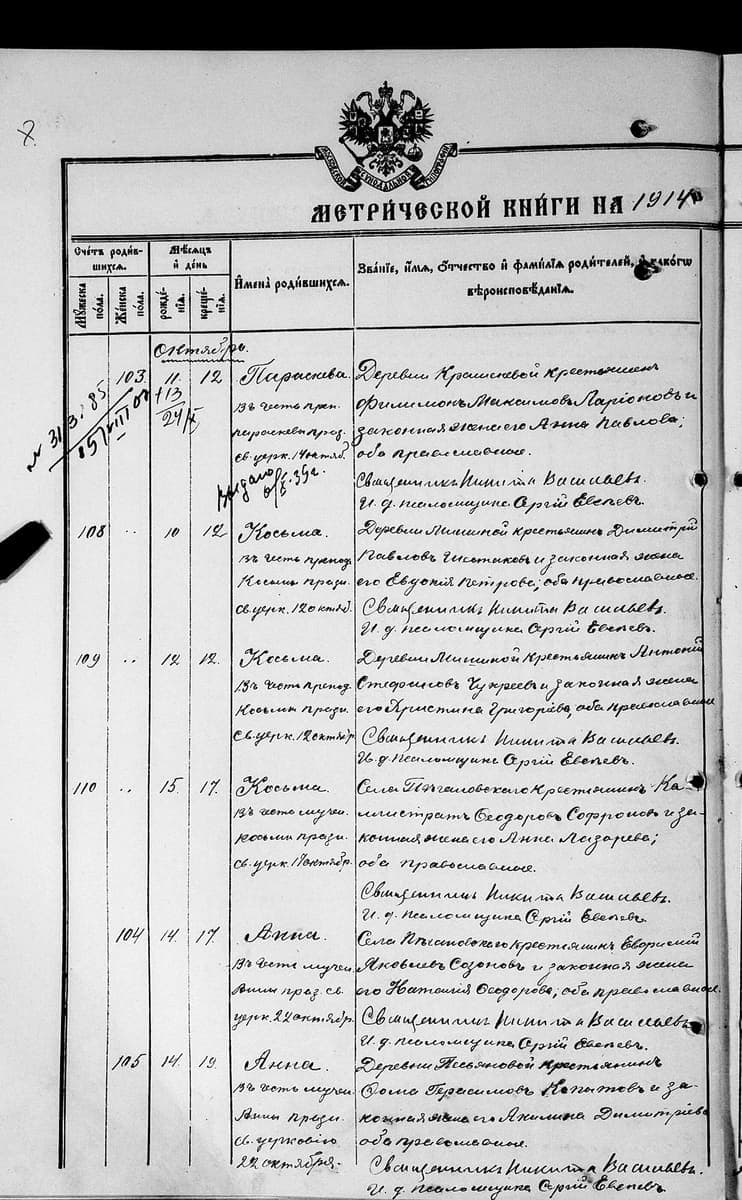 МЕТРИЧЕСКОЙ КНИГИ НА 1914
Счетъ родившихся.
Мѣсяцъ и день
Имена родившихся.
Званіе, имя, отчество и фамилія родителей, и какогѡ вѣроисповѣданія.
Мужеска пола.
Женска пола.
рожденія.
крещенія.
Октябрь.
103. 11 12 Параскева. Деревни крестьянинъ
+13
24/X
Въ честь преп. Филимонъ Максимовъ Ларіоновъ и
Параскевы праз. законная жена его Анна Павлова;
св. церк. 14 октяб. оба православные.
Выдано
Священникъ Никита Васильевъ.
И. д. псаломщика Сергій Евсѣевъ.
108 .. 10 12 Косьма. Деревни Мишиной крестьянинъ Димитрій
Въ честь препод. Павловъ и законная жена
Косьмы праздн. его Евдокія Петрова; оба православные.
св. церк. 12 октяб. Священникъ Никита Васильевъ.
И. д. псаломщика Сергій Евсѣевъ.
109 .. 12 12. Косьма. Деревни Мишиной крестьянинъ Антоній
Въ честь препод. Стефановъ Чукреевъ и законная жена
Косьмы праздн. его Христина Григорьева, оба православные
св. церк. 12 октяб. Священникъ Никита Васильевъ.
И. д. псаломщика Сергій Евсѣевъ.
110 .. 15 17. Косьма. Села Пѣгановского крестьянинъ Ка-
Въ честь мучен. ллистратъ Ѳеодоровъ Софроновъ и за-
Косьмы праздн. конная жена его Анна Лазарева;
св. церк. 17 октябр. оба православные.
Священникъ Никита Васильевъ.
И. д. псаломщика Сергій Евсѣевъ.
104 14. 17. Анна. Села Пѣгановского крестьянинъ
Въ честь мучен. Яковлевъ Созоновъ и законная жена
Анны празд. св. его Наталія Ѳеодорова, оба православные.
церк. 22 октябр. Священникъ Никита Васильевъ
И. д. псаломщика Сергій Евсѣевъ.
105 14. 19. Анна. Деревни крестьянинъ
Въ честь мучен. Ѳома Герасимовъ Копытовъ и за-
Анны праздн. конная жена его Акилина Димитріева
св. церковію оба православные.
22 октября. Священникъ Никита Васильевъ.
И. д. псаломщика Сергій Евсѣевъ.